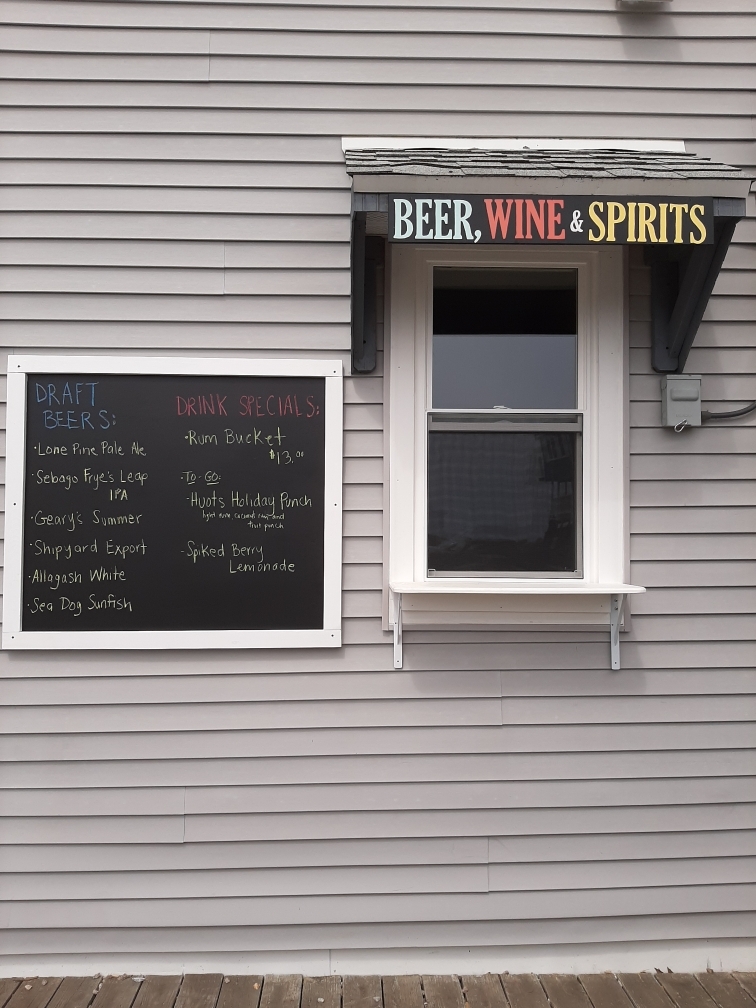 BEER, WINE & SPIRITS
DRAFT
BEERS:
·Lone Pine Pale Ale
·Sebago Frye's Leap
IPA
·Geary's Summer
·Shipyard Export
·Allagash White
·Sea Dog Sunfish
DRINK SPECIALS:
·Rum Bucket
$13.00
·TO-GO:
·Huots Holiday Punch
light rum, coconut rum and
fruit punch
·Spiked Berry
Lemonade